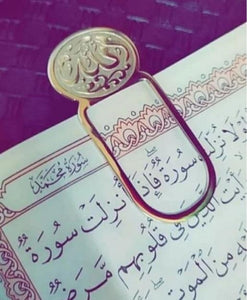 سُورَةُ مُحَمَّد
لَا نُزِّلَتْ سُورَةٌ فَإِذَا أُنزِلَتْ سُورَةٌ
أَيْتَ الَّذِينَ فِي قُلُوبِهِم مَّرَضٌ
مِنَ الْمَوْتِ